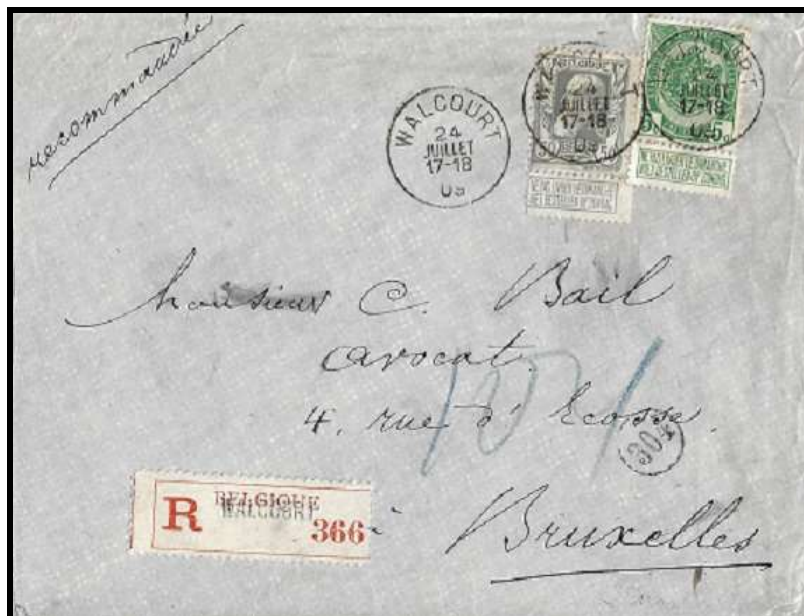 recommandée
WALCOURT
24
JUILLET
17-18
24
JUILLET
17-18
24
JUILLET
17-18
5
Monsieur C. Bail
avocat.
4, rue d' Ecosse.
304
R BELGIQUE
WALCOURT
366
à
Bruxelles